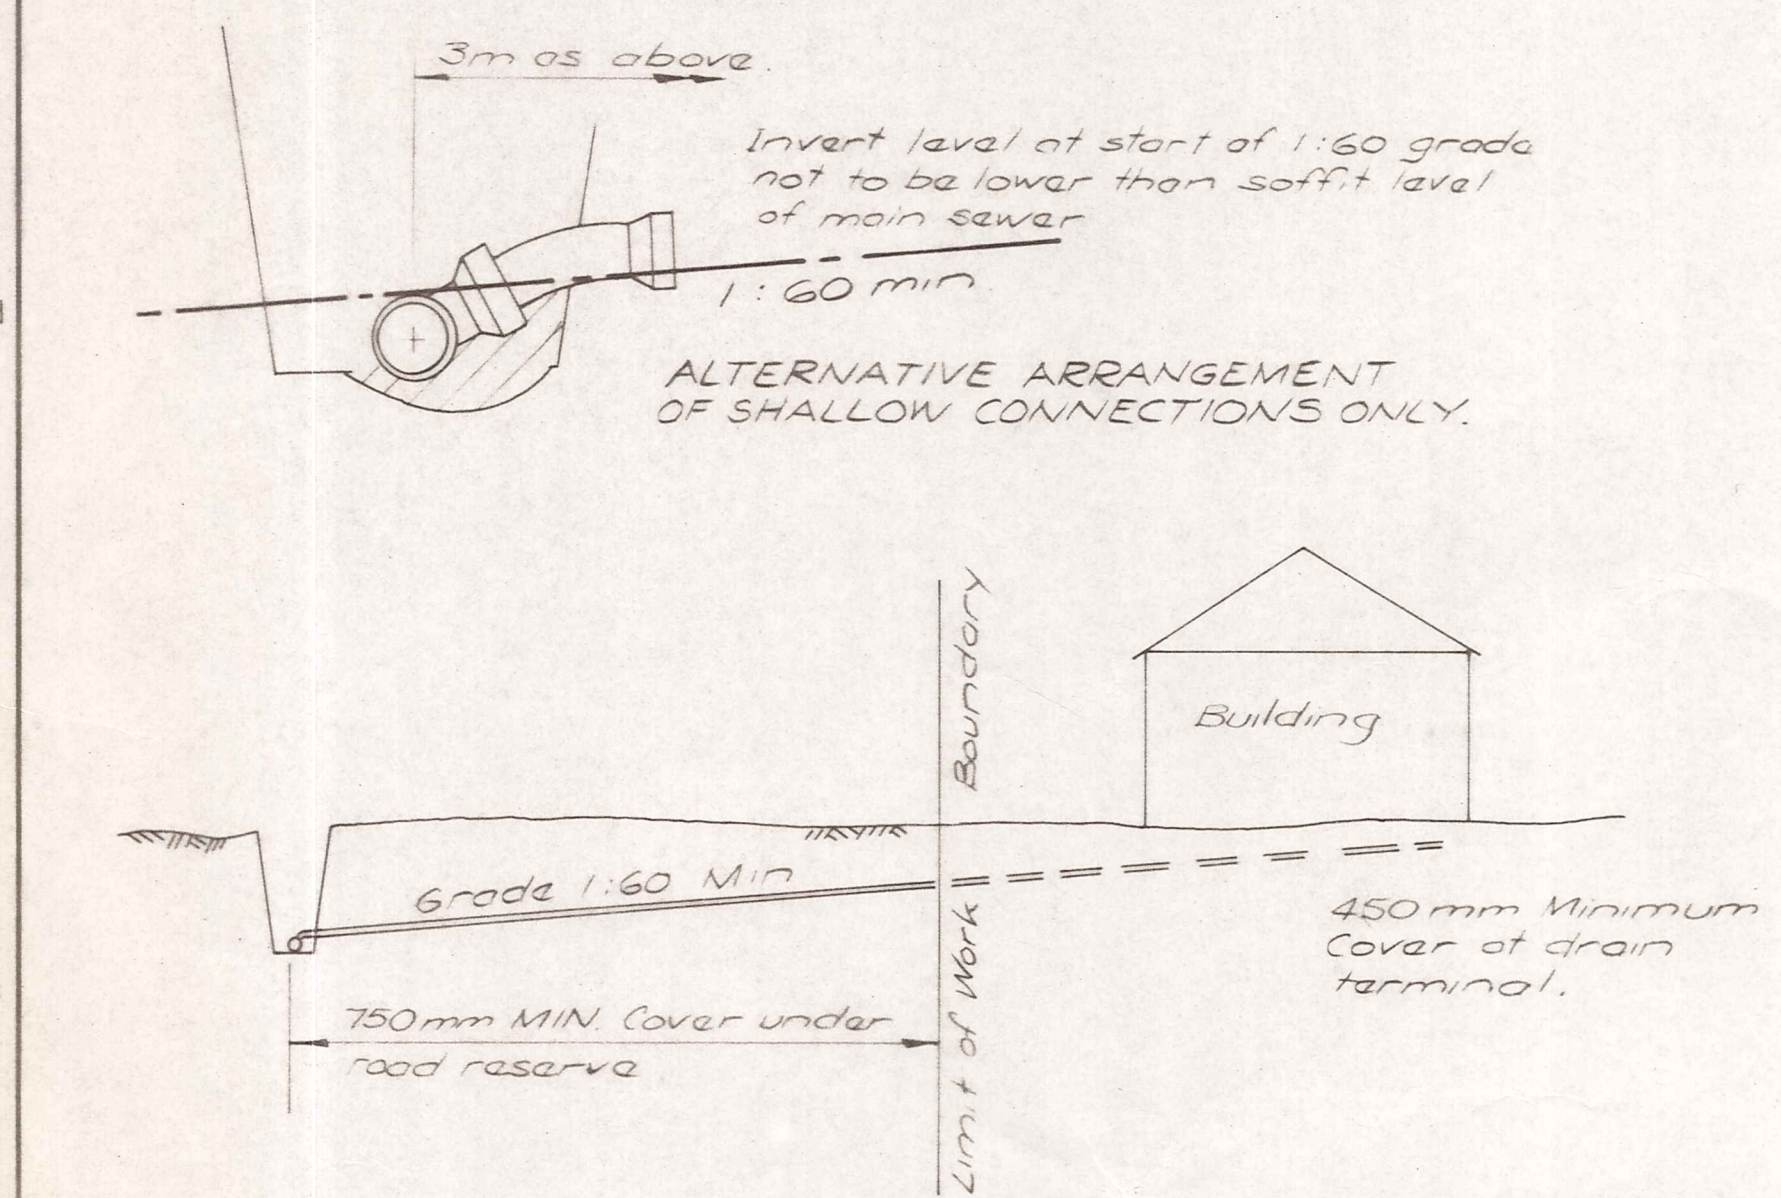 3m as above.
Invert level at start of 1:60 grade
not to be lower than soffit level
of main sewer
1:60 min
ALTERNATIVE ARRANGEMENT
OF SHALLOW CONNECTIONS ONLY.
Boundary
Building
Grade 1:60 Min
450mm Minimum
Cover at drain
terminal.
Limit of Work
750mm MIN. Cover under
road reserve